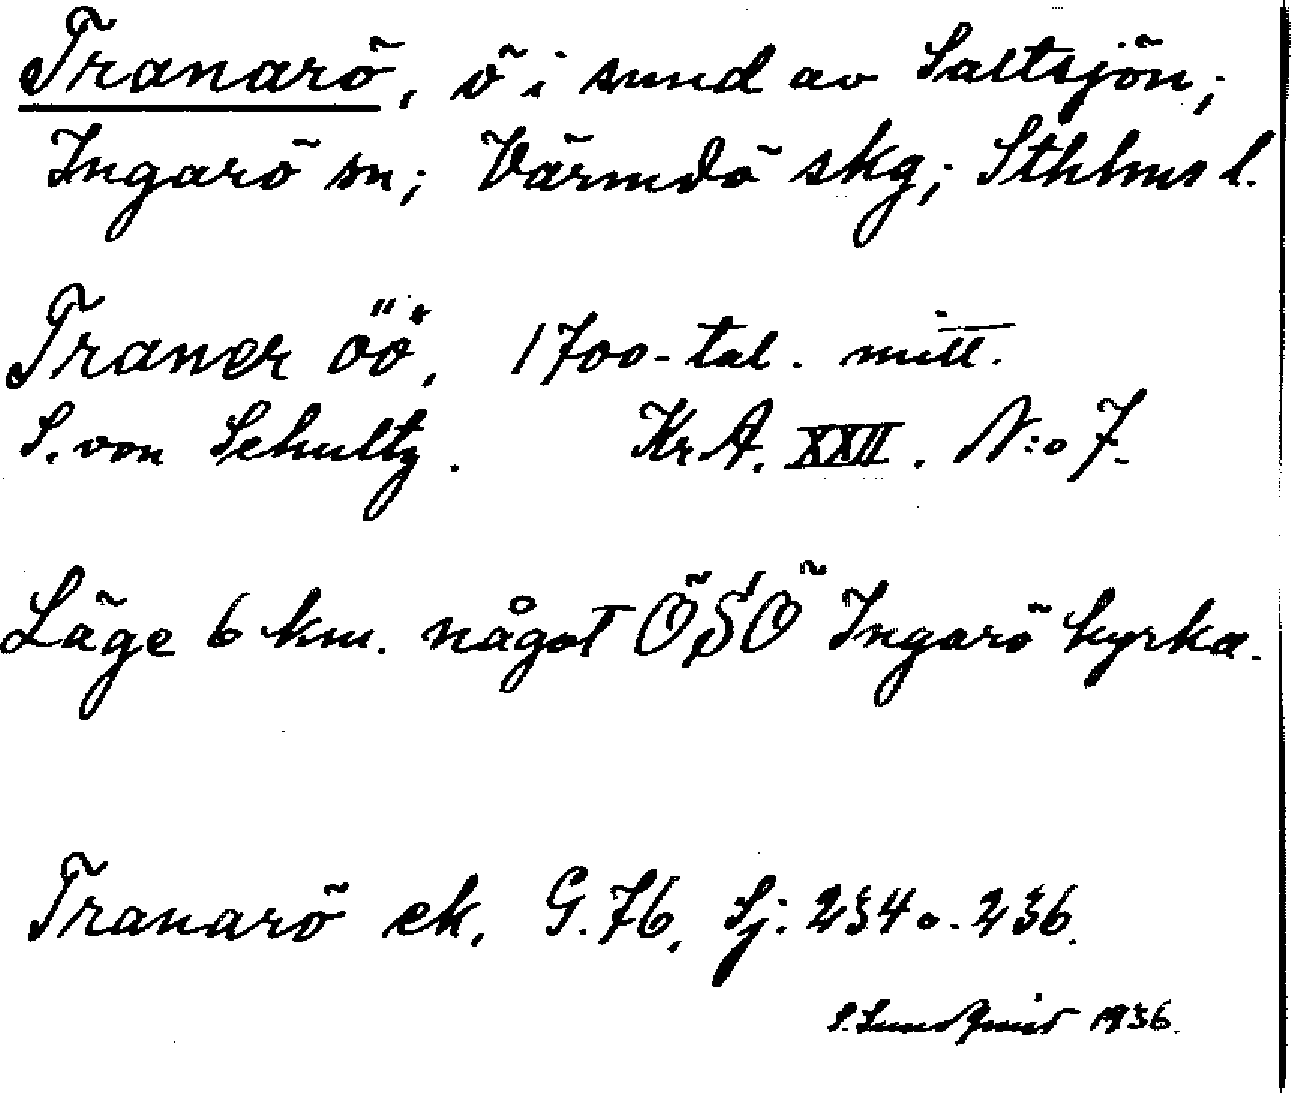 Tranarö, ö i sund av Saltsjön;
Ingarö sn; Värmdö skg; Sthlms l.
Traner öö. 1700-tal. mitt.
S. von Schultz. Kr A. XXII. N:o 7.
Läge 6 km. något ÖSÖ Ingarö kyrka.
Tranarö ek. G. 76, Sj: 234 o. 236.
S. Sundquist 1936.